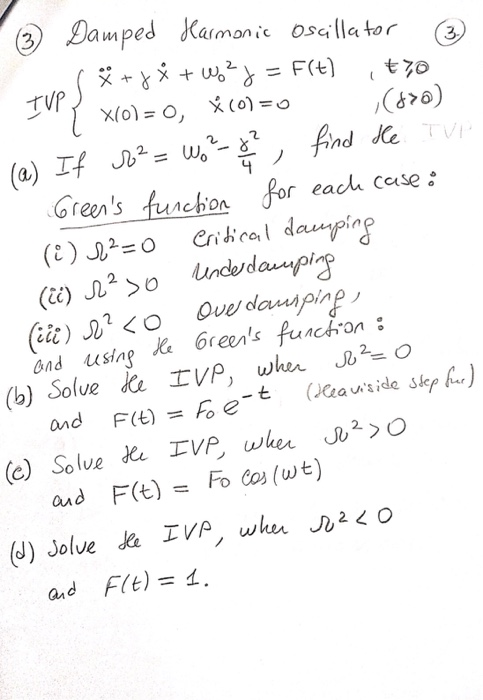 ③ Damped Harmonic oscillator ③
IVP { ẍ + γẋ + ω₀² γ = F(t) , t≥0
x(0) = 0, ẋ(0) = 0 , (γ>0)
(a) If Ω² = ω₀² - γ²/4 , find the IVP
Green's function for each case:
(i) Ω² = 0 critical damping
(ii) Ω² > 0 Underdamping
(iii) Ω² < 0 Overdamping,
and using the Green's function:
(b) Solve the IVP, when Ω² = 0
and F(t) = F₀ e^-t (Heaviside step func)
(c) Solve the IVP, when Ω² > 0
and F(t) = F₀ cos(ωt)
(d) Solve the IVP, when Ω² < 0
and F(t) = 1.